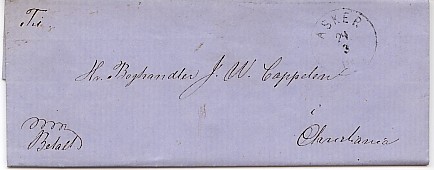 Til
ASKER
24
3
Hr. Boghandler J. W. Cappelen
i
Christiania
Betalt